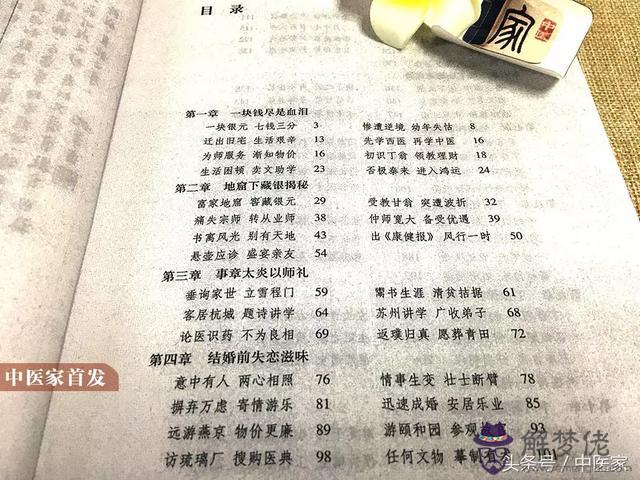 目 录
家
中医
第一章 一块钱尽是血泪
一块银元 七钱三分 3 惨遭逆境 幼年失怙 8
迁出旧宅 生活艰辛 13 先学西医 再学中医 16
为师服务 渐知物价 16 初识丁翁 领教理财 18
生活困顿 卖文助学 23 否极泰来 进入鸿运 24
第二章 地窟下藏银揭秘
富家地窟 窖藏银元 29 受教甘翁 突遭波折 32
痛失宗师 转从业师 38 仲师宽大 备受优遇 39
书寓风光 别有天地 43 出《康健报》 风行一时 50
悬壶应诊 盛宴亲友 54
第三章 事章太炎以师礼
垂询家世 立雪程门 59 鬻书生涯 清贫拮据 61
客居杭城 题诗讲学 64 苏州讲学 广收弟子 68
论医识药 不为良相 69 返璞归真 愿葬青田 72
第四章 结婚前失恋滋味
意中有人 两心相照 76 情事生变 壮士断臂 78
摒弃万虑 寄情游乐 81 迅速成婚 安居乐业 85
远游燕京 物价更廉 89 游颐和园 参观故宫 93
访琉璃厂 搜购医典 98 任何文物 摹制有术 101
中医家首发
解梦佬
头条号 / 中医家